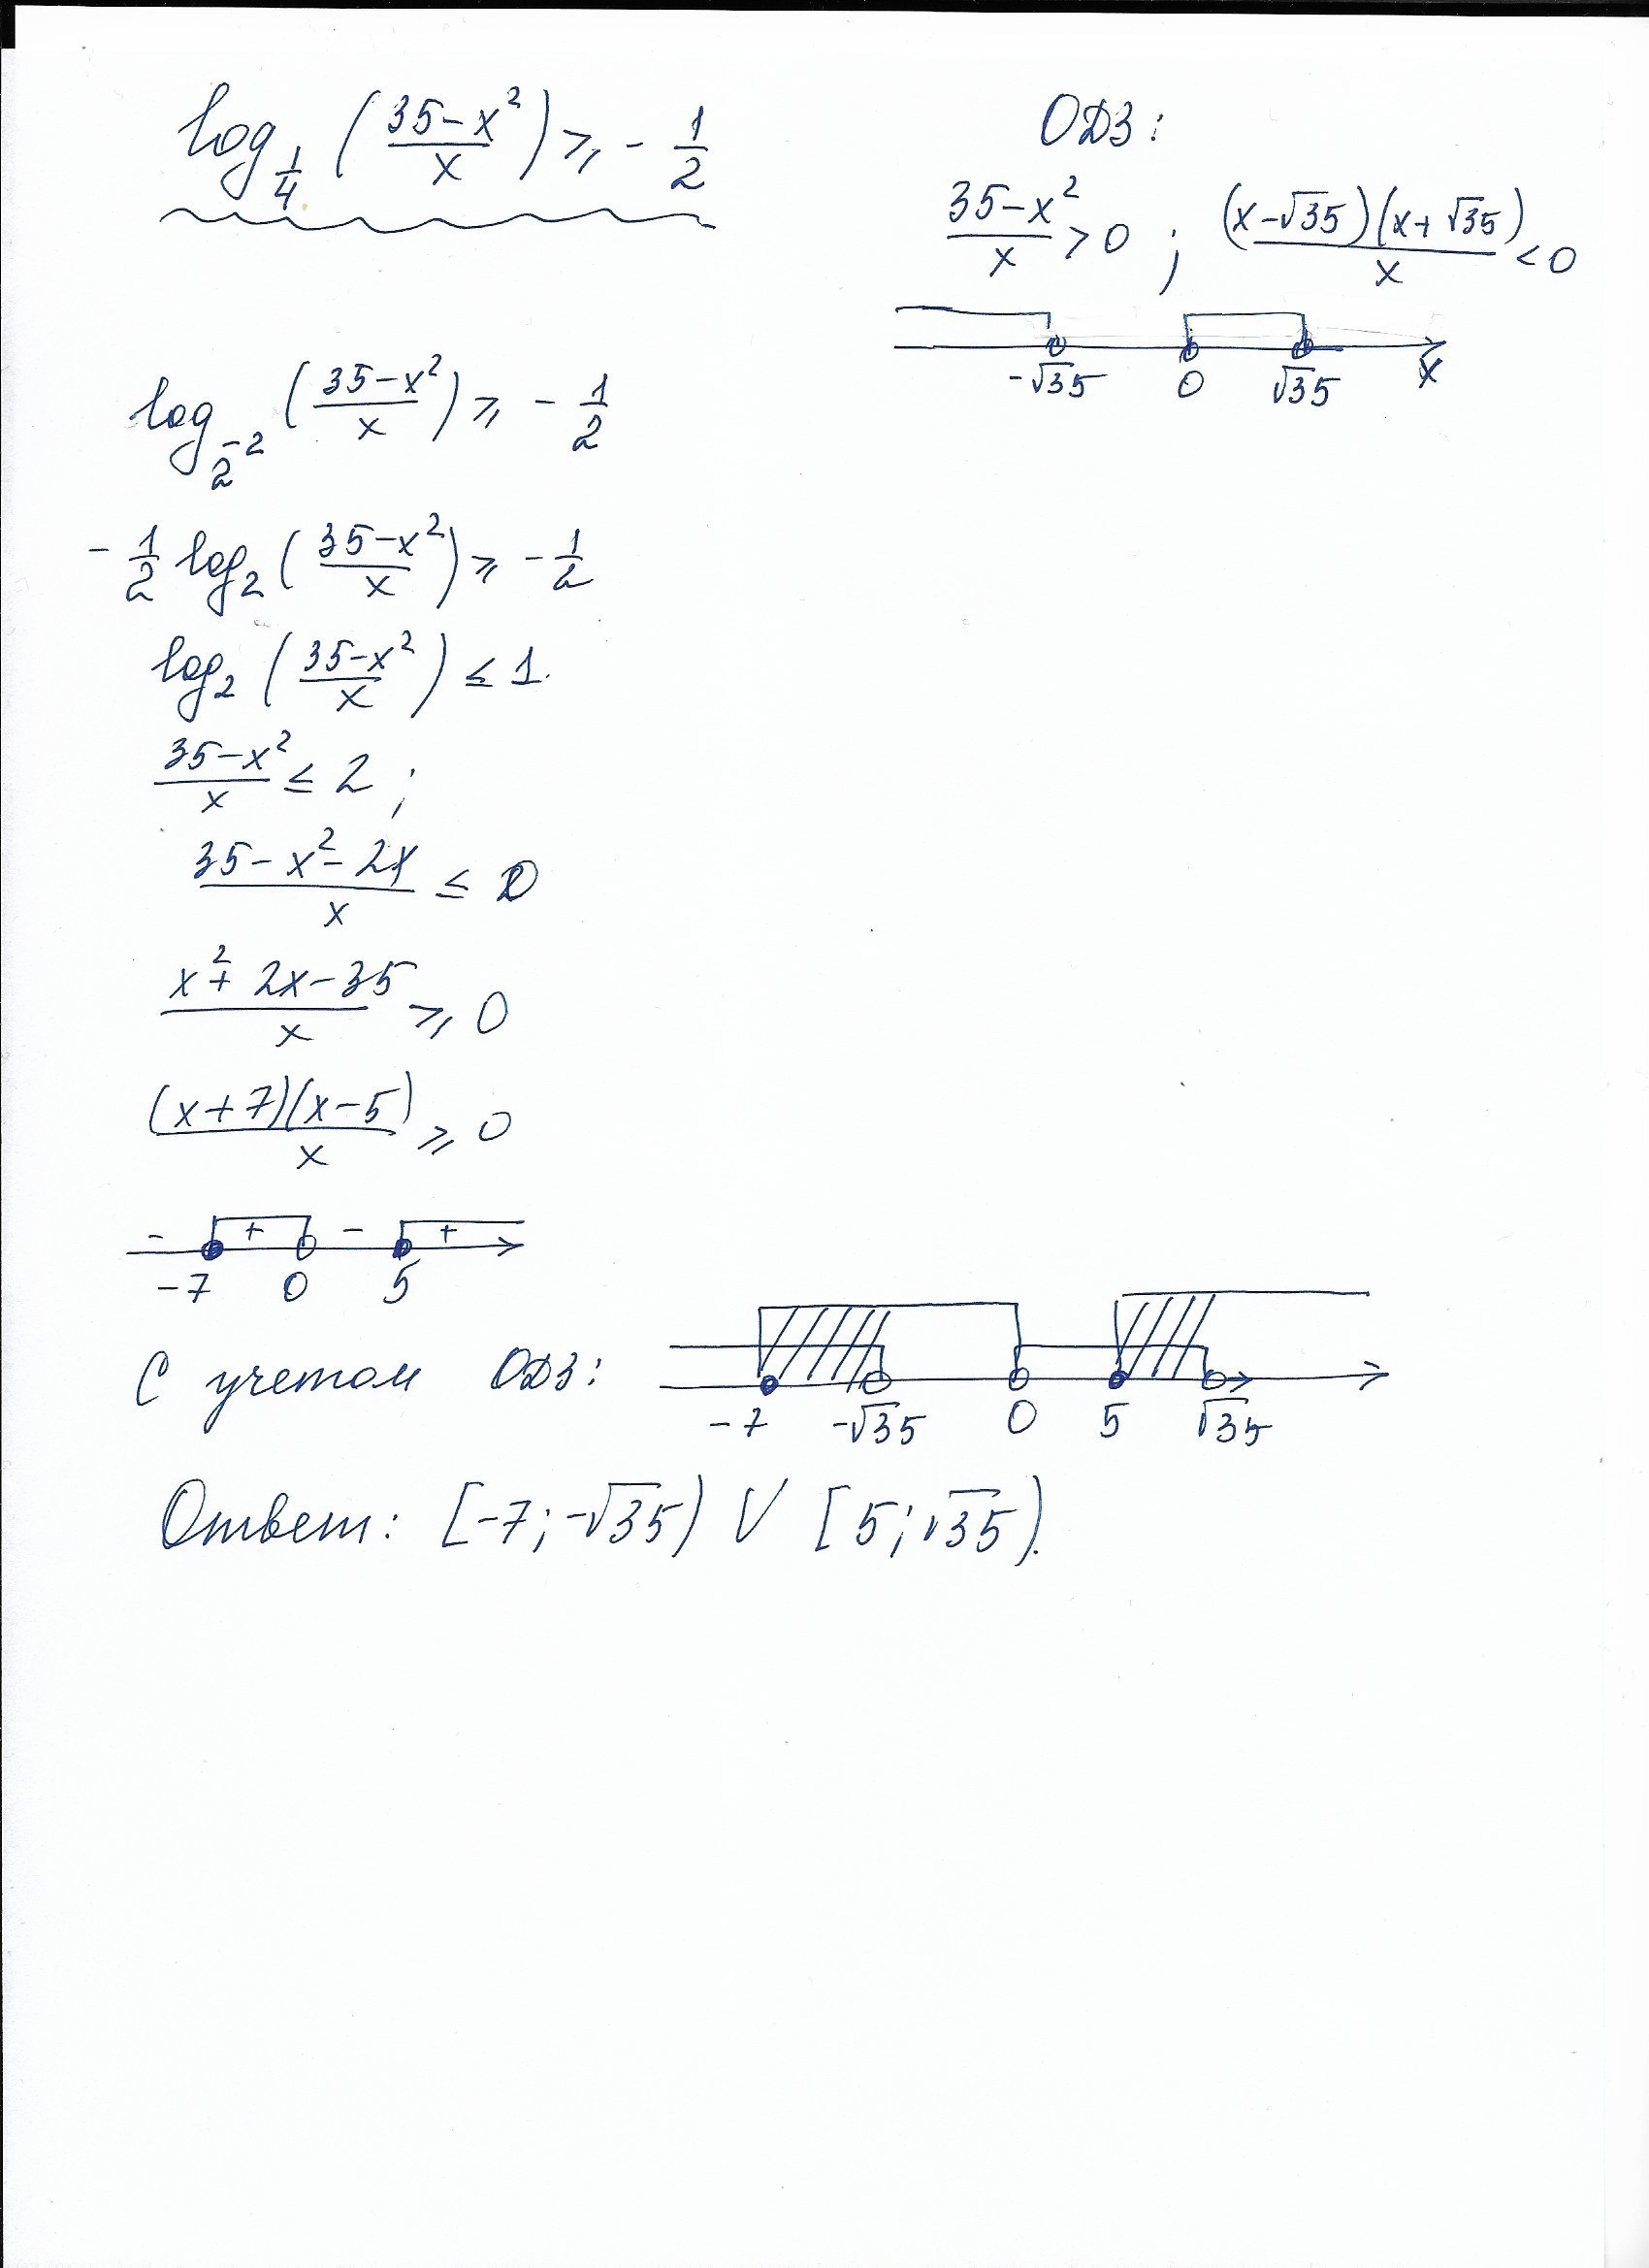 log_{1/4} ((35-x²)/x) ⩾ - 1/2
ОДЗ:
(35-x²)/x > 0 ; ((x-√35)(x+√35))/x < 0
-√35 0 √35 x
log_{2^{-2}} ((35-x²)/x) ⩾ - 1/2
- 1/2 log₂ ((35-x²)/x) ⩾ - 1/2
log₂ ((35-x²)/x) ≤ 1.
(35-x²)/x ≤ 2 ;
(35-x²-2x)/x ≤ 0
(x²+2x-35)/x ⩾ 0
((x+7)(x-5))/x ⩾ 0
- + - +
-7 0 5
С учетом ОДЗ:
-7 -√35 0 5 √35
Ответ: [-7; -√35) V [5; √35).